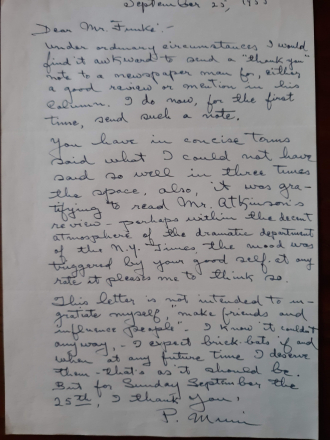 September 25, 1955
Dear Mr. Funke:-
Under ordinary circumstances I would
find it awkward to send a "thank you"
note to a newspaper man for, either
a good review or mention in his
column. I do now, for the first
time, send such a note.
You have in concise terms
said what I could not have
said so well in three times
the space. Also, it was gra-
tifying to read Mr. Atkinson's
review - perhaps within the decent
atmosphere of the dramatic department
of the N.Y. Times, the mood was
triggered by your good self. At any
rate it pleases me to think so.
This letter is not intended to in-
gratiate myself, "make friends and
influence people". - I know it couldn't
anyway, - I expect brick-bats if and
when at any future time I deserve
them - that's as it should be.
But for Sunday September the
25th, I thank you!
P. Muni